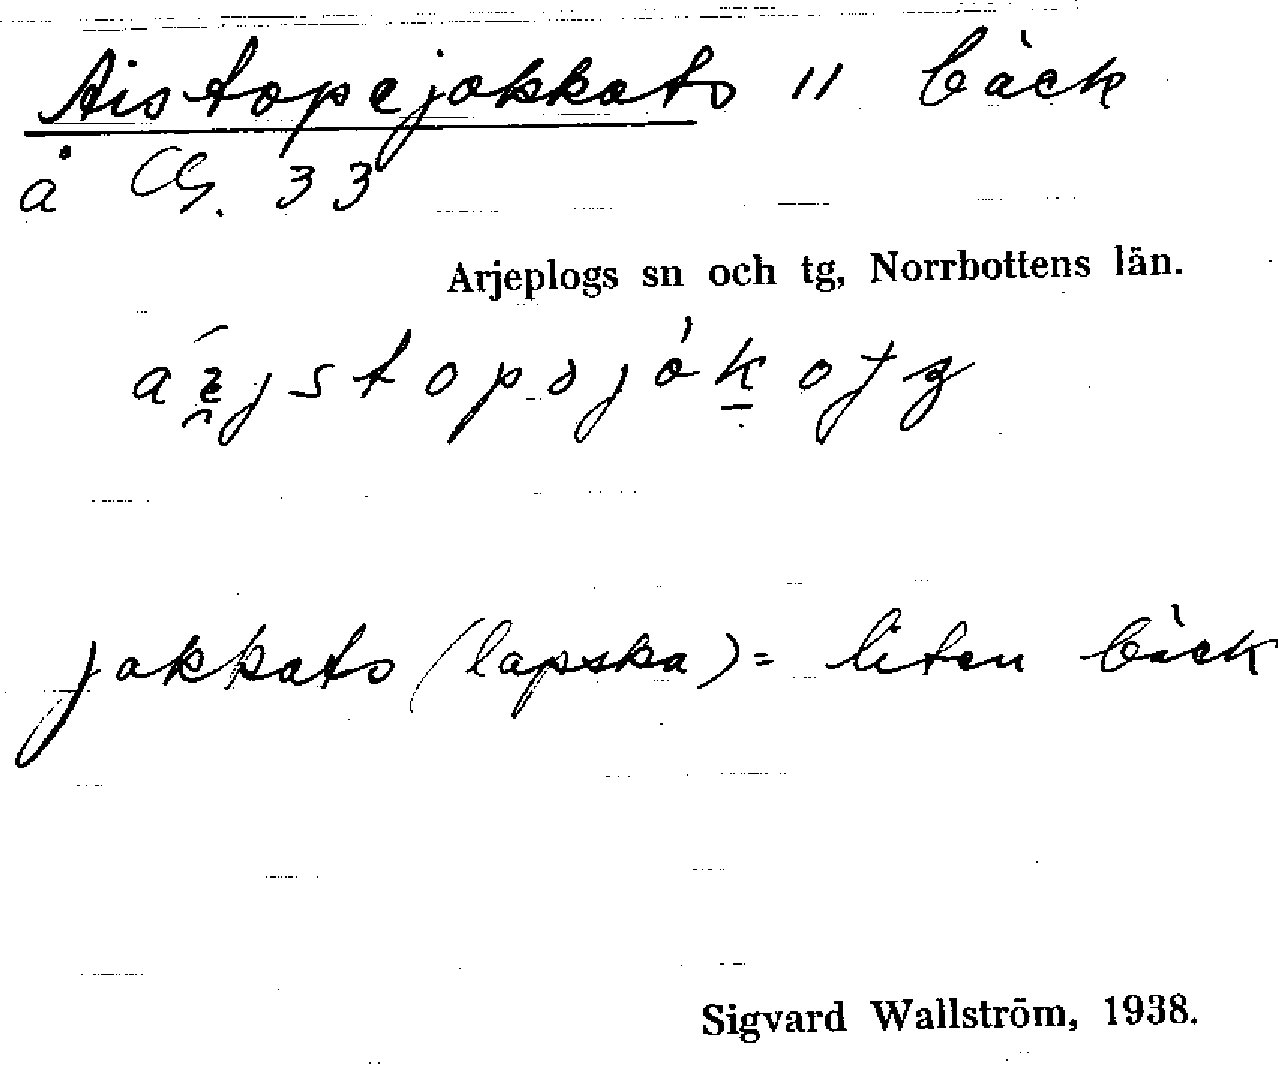 Aistopejokkats 11 bäck
å CG. 33
Arjeplogs sn och tg, Norrbottens län.
jokkats (lapska) = liten bäck
Sigvard Wallström, 1938.